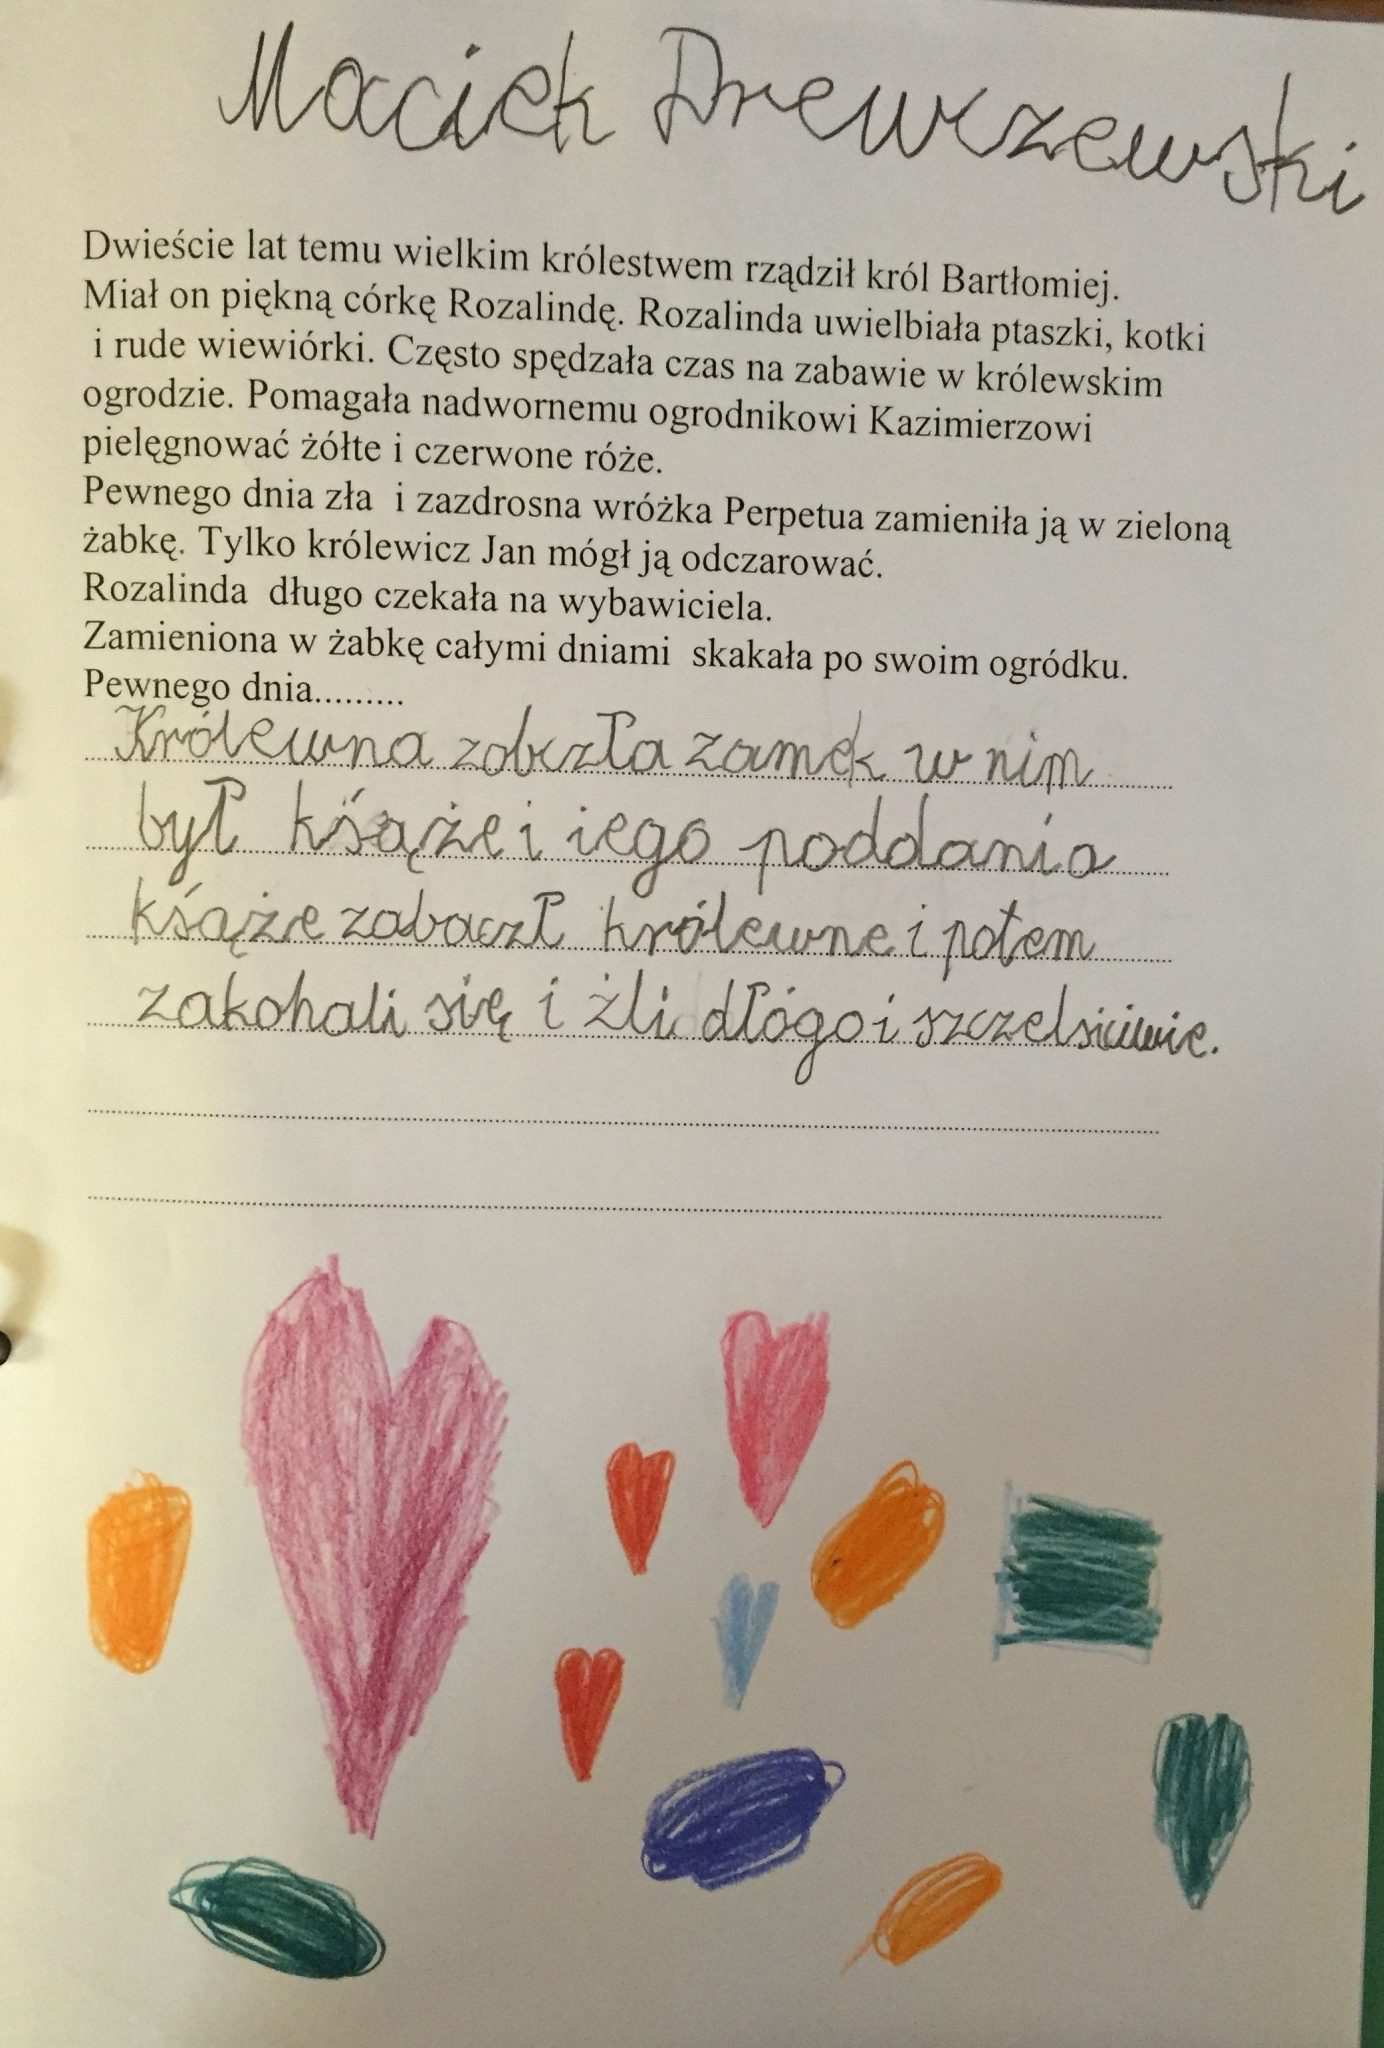 Maciek Drewczewski
Dwieście lat temu wielkim królestwem rządził król Bartłomiej.
Miał on piękną córkę Rozalindę. Rozalinda uwielbiała ptaszki, kotki
i rude wiewiórki. Często spędzała czas na zabawie w królewskim
ogrodzie. Pomagała nadwornemu ogrodnikowi Kazimierzowi
pielęgnować żółte i czerwone róże.
Pewnego dnia zła i zazdrosna wróżka Perpetua zamieniła ją w zieloną
żabkę. Tylko królewicz Jan mógł ją odczarować.
Rozalinda długo czekała na wybawiciela.
Zamieniona w żabkę całymi dniami skakała po swoim ogródku.
Pewnego dnia.........
Królewna zobczła zamek w nim
był kśążę i iego poddania
kśąże zabaczł królewne i potem
zakohali się i żli dłógo i